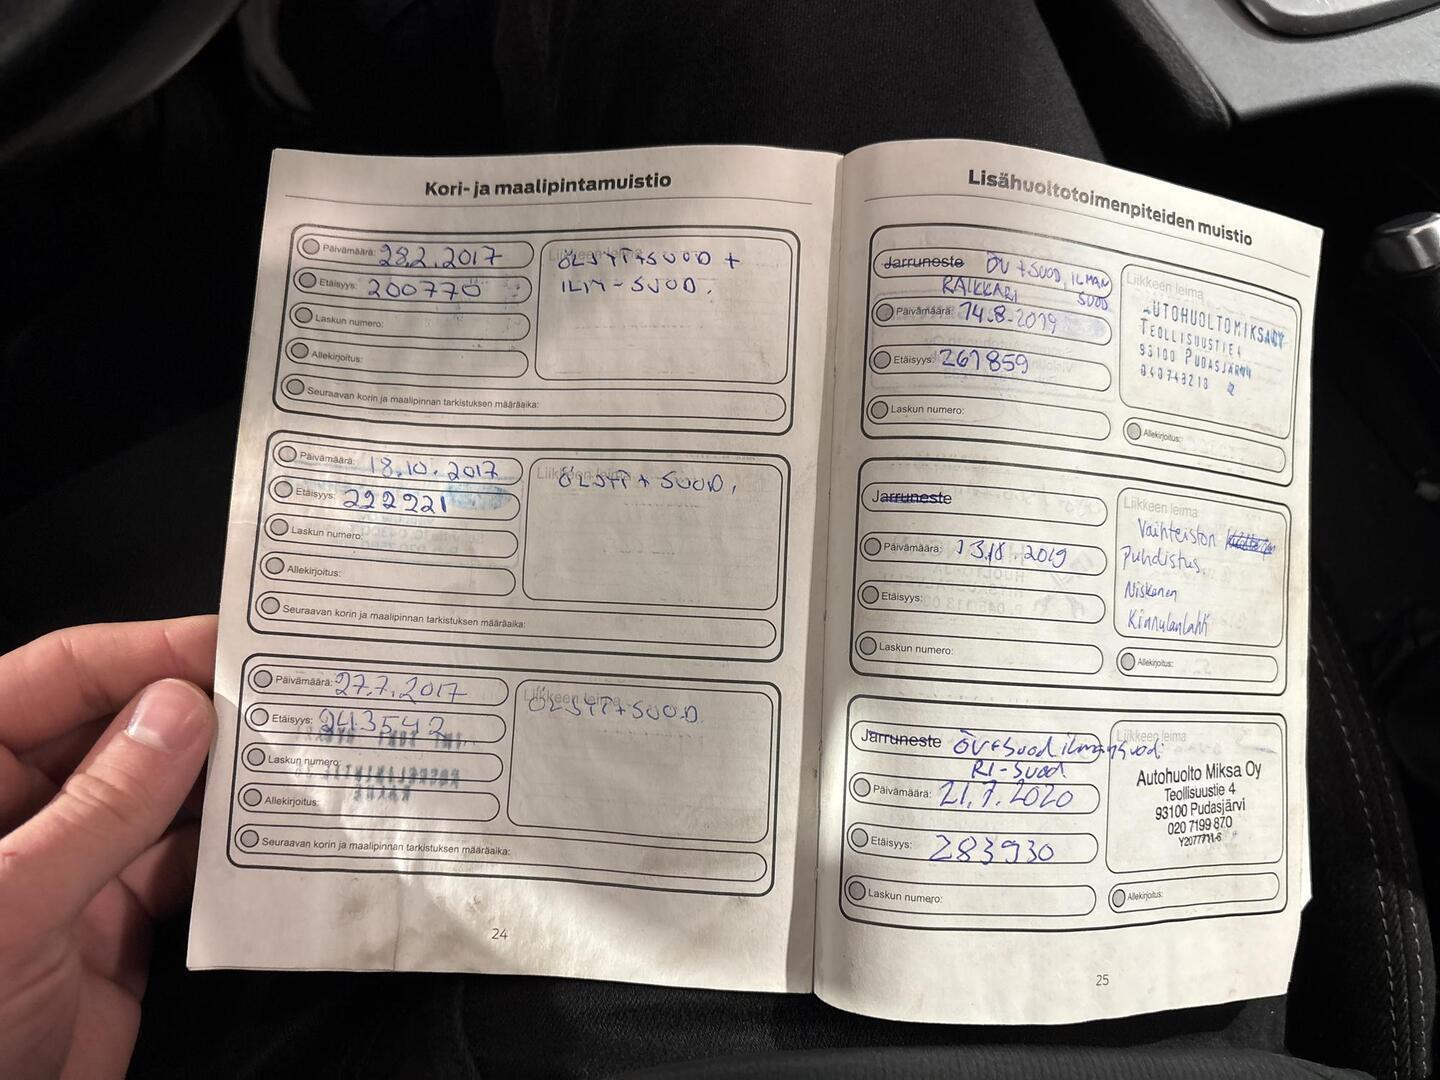 Kori- ja maalipintamuistio
Päivämäärä: 28.2.2017
Etäisyys: 200770
Laskun numero:
Allekirjoitus:
Seuraavan korin ja maalipinnan tarkistuksen määräaika:
Liikkeen leima
ÖLJYT+SUOD +
ILM-SUOD.
Päivämäärä: 18.10.2017
Etäisyys: 222221
Laskun numero:
Allekirjoitus:
Seuraavan korin ja maalipinnan tarkistuksen määräaika:
Liikkeen leima
ÖLJYT+SUOD.
Päivämäärä: 27.7.2017
Etäisyys: 243542
Laskun numero:
Allekirjoitus:
Seuraavan korin ja maalipinnan tarkistuksen määräaika:
Liikkeen leima
ÖLJYT+SUOD.
24
Lisähuoltotoimenpiteiden muistio
Jarruneste ÖV+SUOD, ILMAN
RAIKKARI SUOD
Päivämäärä: 14.8.2019
Etäisyys: 267859
Laskun numero:
Liikkeen leima
AUTOHUOLTO MIKSA OY
TEOLLISUUSTIE 4
93100 PUDASJÄRVI
Allekirjoitus:
Jarruneste
Päivämäärä: 13.10.2019
Etäisyys:
Laskun numero:
Liikkeen leima
Vaihteiston
Puhdistus.
Niskanen
Kinnulanlahti
Allekirjoitus:
Jarruneste ÖV+Suod ilmansuod.
RI-Suod
Päivämäärä: 21.7.2020
Etäisyys: 283930
Laskun numero:
Liikkeen leima
Autohuolto Miksa Oy
Teollisuustie 4
93100 Pudasjärvi
020 7199 870
Y2077711-6
Allekirjoitus:
25